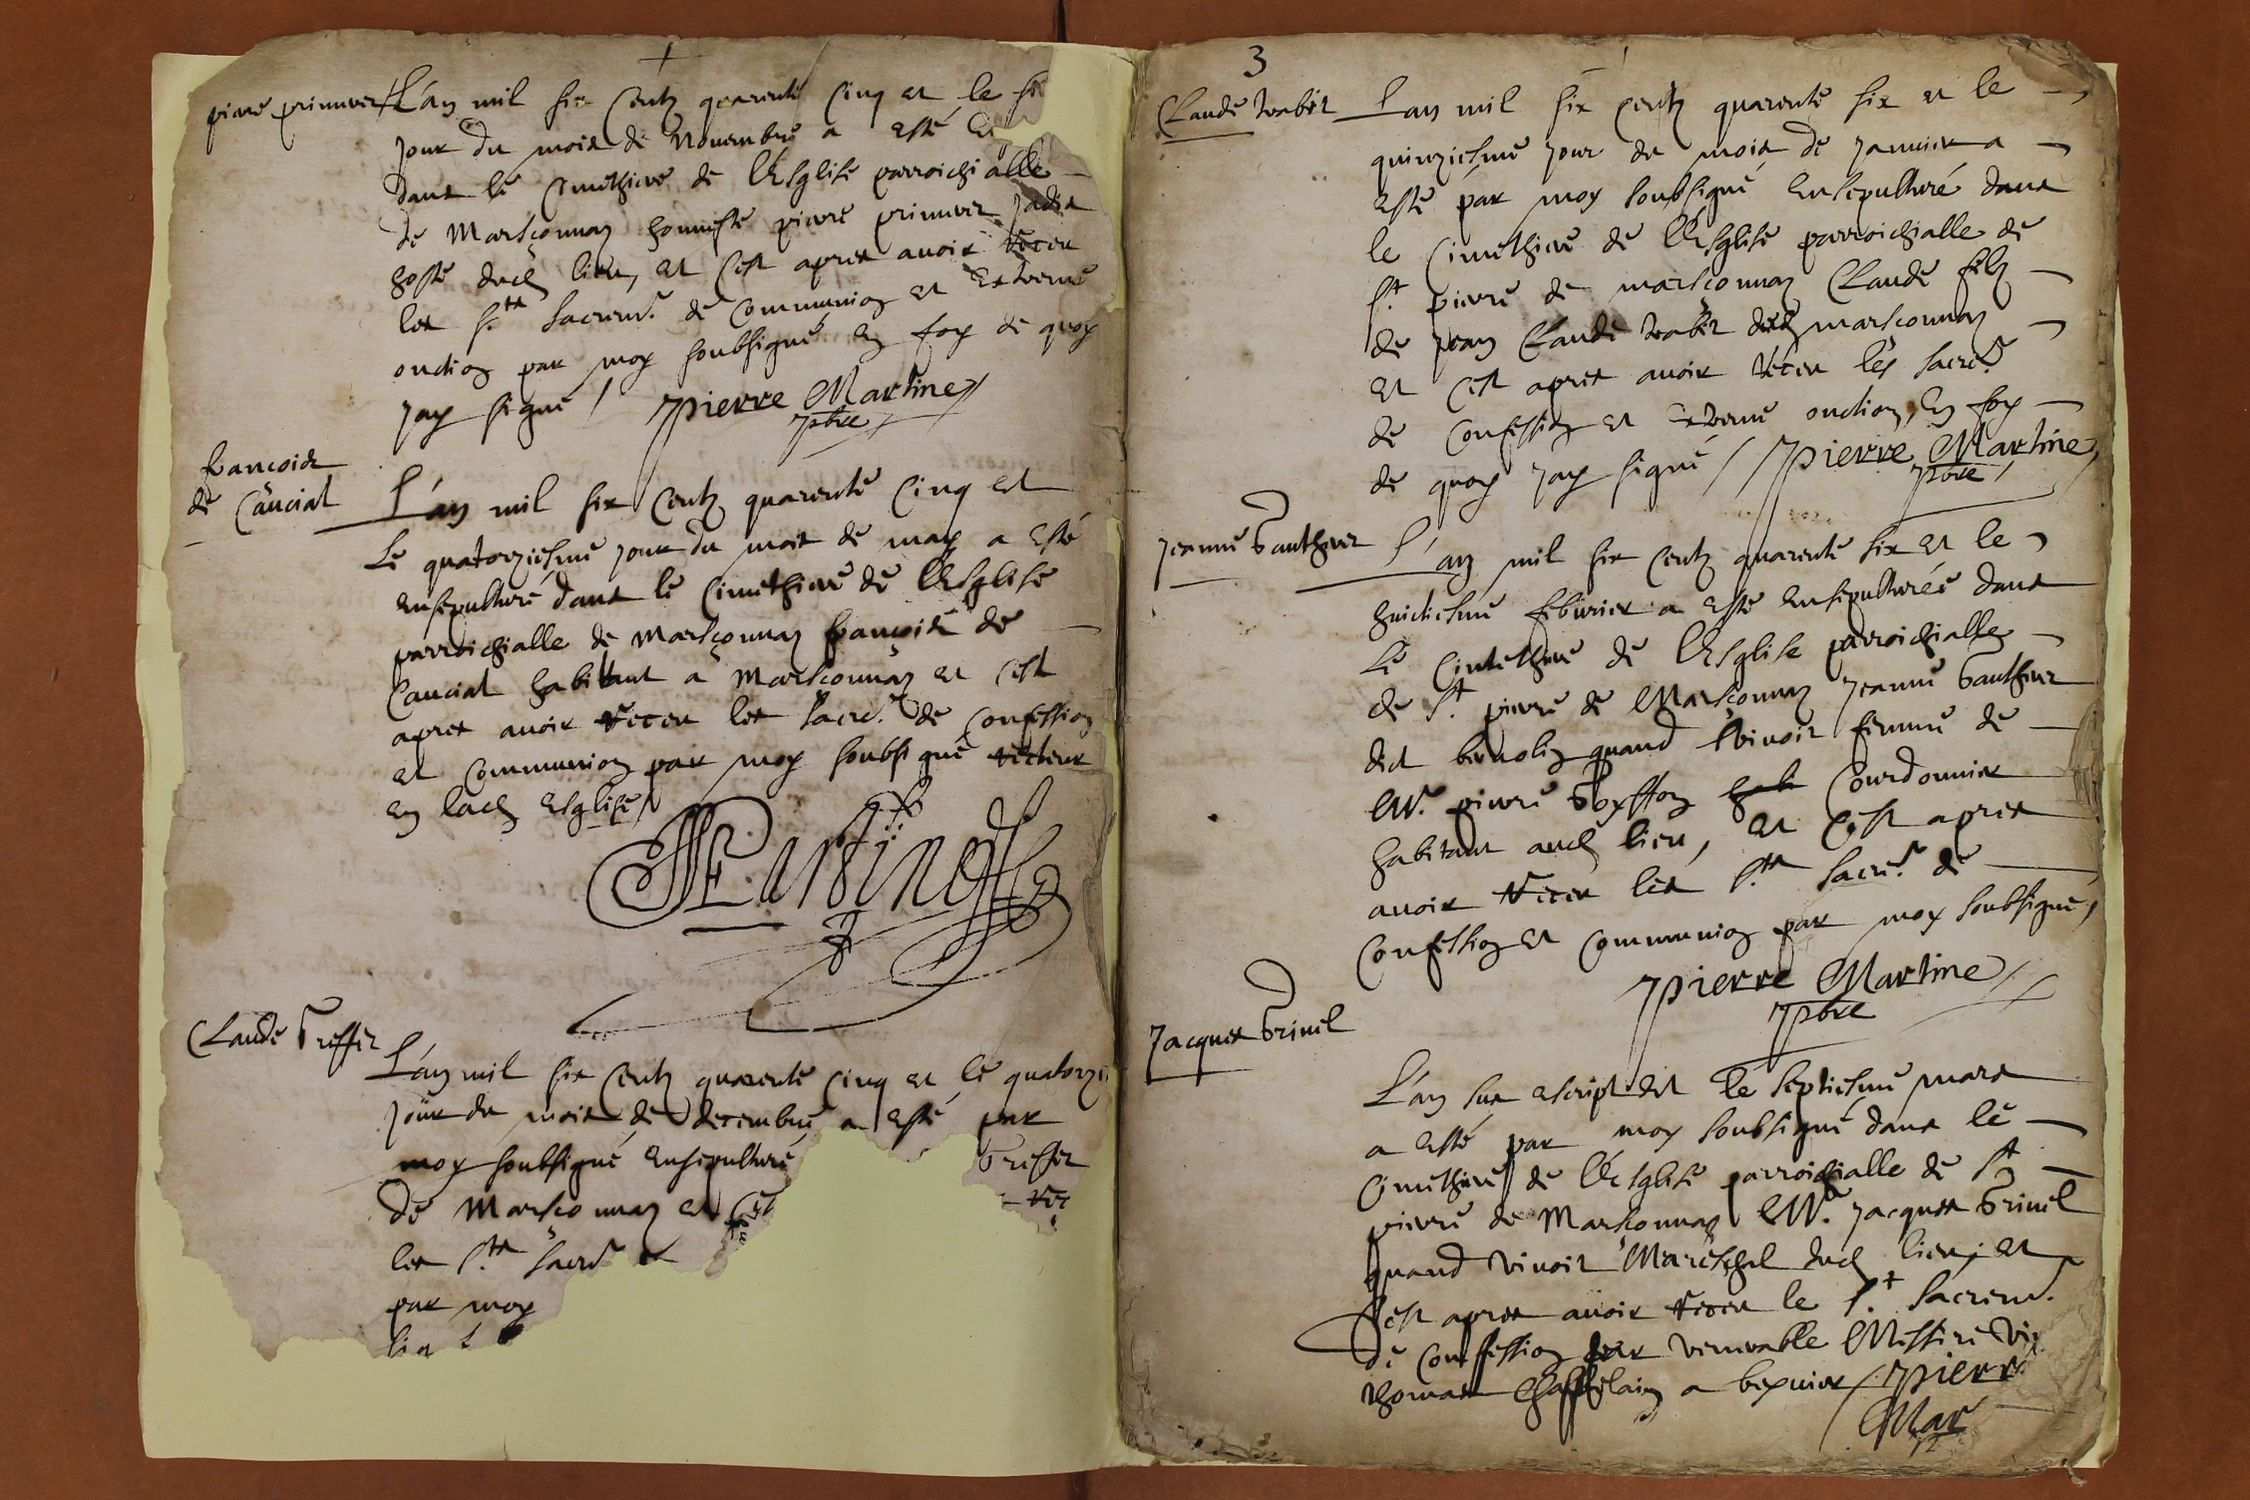 pierre primmer
L'an mil six centz quarente cinq et le
jour du mois de Novembre a esté
dans le cimethiere de l'Esglise parroichialle
de Marsconnay honneste pierre primmer jadis
hoste dud lieu, et c'est apres avoir receu
les S.ts Sacrem.t de Communion et Extreme
onction par moy soubsigné en foy de quoy
jay signé / Pierre Martine
pbre
francois
de Cancial
L'an mil six centz quarente cinq et
Le quatorziesme jour du mois de may a esté
ensepulturé dans le cimethiere de l'Esglise
parroichialle de Marsconnay francois de
Cancial habitant a Marsconnay et c'est
apres avoir receu les sacre.t de Confession
et Communion par moy soubsigné recteur
en lad Esglise
Claude
L'an mil six centz quarente cinq et le quatorzi
jour du mois de decembre a esté par
moy soubsigné ensepulturé
de Marsconnay et c'est
les S.ts sacre.t et
par moy
3
Claude trabit
L'an mil six centz quarente six et le
quinziesme jour du mois de janvier a
esté par moy soubsigné ensepulturé dans
le cimethiere de l'Esglise parroichialle de
S.t pierre de marsconnay Claude filz
de jean Claude trabit dud marsconnay
et c'est apres avoir receu les sacre.t
de Confession et extreme onction, en foy
de quoy jay signé / Pierre Martine
pbre
jeanne Gauthier
L'an mil six centz quarente six et le
huictiesme febvrier a esté ensepulturée dans
Le cimethiere de l'Esglise parroichialle
de S.t pierre de Marsconnay jeanne Gauthier
dict quand vivoit femme de
M.e pierre Goyffon Courdonnier
habitant aud lieu, et c'est apres
avoir receu les S.ts sacre.t de
Confession et Communion par moy soubsigné,
Pierre Martine
pbre
Jacques Grivel
L'an sus escript et le septiesme mars
a esté par moy soubsigné dans le
cimethiere de l'Esglise parroichialle de S.t
pierre de Marsconnay M.e jacques Grivel
quand vivoit Mareschal dud lieu, et
c'est apres avoir receu le S.t sacrem.t
de confession par venerable Messire
thomas Chappelain a / Pierre
Mar